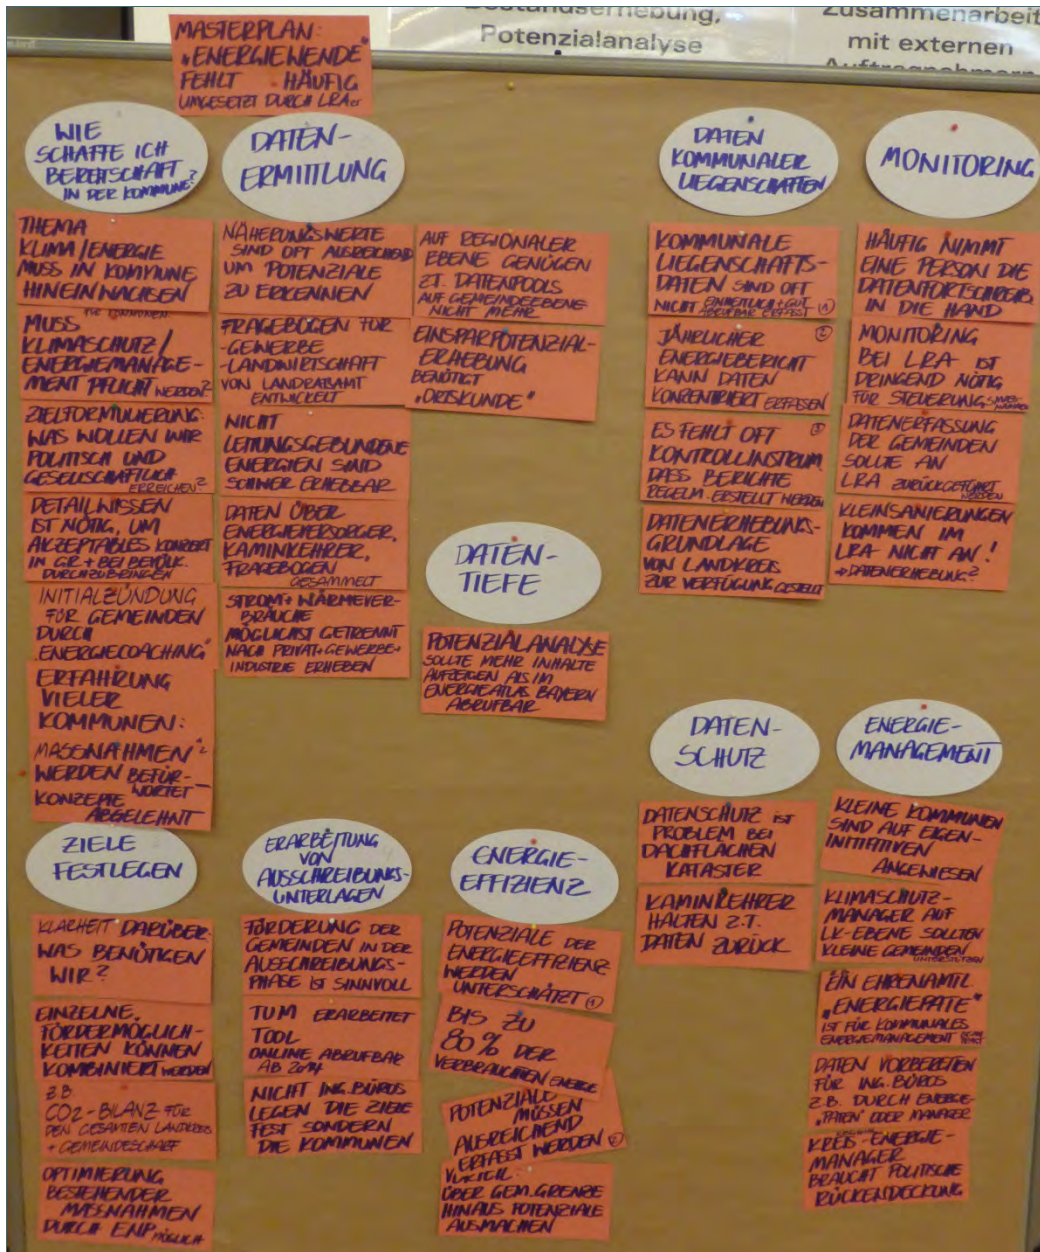 Bestandserhebung,
Potenzialanalyse
Zusammenarbeit
mit externen
Auftragnehmern
MASTERPLAN:
"ENERGIEWENDE"
FEHLT HÄUFIG
UMGESETZT DURCH LRÄer
WIE
SCHAFFE ICH
BEREITSCHAFT
IN DER KOMMUNE?
THEMA
KLIMA/ENERGIE
MUSS IN KOMMUNE
HINEINWACHSEN
MUSS FÜR KOMMUNEN
KLIMASCHUTZ/
ENERGIEMANAGE-
MENT PFLICHT WERDEN?
ZIELFORMULIERUNG:
WAS WOLLEN WIR
POLITISCH UND
GESELLSCHAFTLICH
ERREICHEN?
DETAILWISSEN
IST NÖTIG, UM
AKZEPTABLES KONZEPT
IN GR + BEI BEVÖLK.
DURCHZUBRINGEN
INITIALZÜNDUNG
FÜR GEMEINDEN
DURCH
"ENERGIECOACHING"
ERFAHRUNG
VIELER
KOMMUNEN:
MASSNAHMEN
WERDEN BEFÜR-
WORTET
KONZEPTE
ABGELEHNT
DATEN-
ERMITTLUNG
NÄHERUNGSWERTE
SIND OFT AUSREICHEND
UM POTENZIALE
ZU ERKENNEN
FRAGEBÖGEN FÜR
-GEWERBE
-LANDWIRTSCHAFT
VON LANDRATSAMT
ENTWICKELT
NICHT
LEITUNGSGEBUNDENE
ENERGIEN SIND
SCHWER ERHEBBAR
DATEN ÜBER
ENERGIEVERSORGER,
KAMINKEHRER,
FRAGEBÖGEN
GESAMMELT
STROM+ WÄRMEVER-
BRÄUCHE
MÖGLICHST GETRENNT
NACH PRIVAT+GEWERBE+
INDUSTRIE ERHEBEN
AUF REGIONALER
EBENE GENÜGEN
Z.T. DATENPOOLS
AUF GEMEINDEEBENE
NICHT MEHR
EINSPARPOTENZIAL-
ERHEBUNG
BENÖTIGT
"ORTSKUNDE"
DATEN-
TIEFE
POTENZIALANALYSE
SOLLTE MEHR INHALTE
AUFZEIGEN ALS IM
ENERGIEATLAS BAYERN
ABRUFBAR
DATEN
KOMMUNALER
LIEGENSCHAFTEN
KOMMUNALE
LIEGENSCHAFTS-
DATEN SIND OFT
NICHT EINHEITLICH + GUT
ABRUFBAR ERFASST 1
JÄHRLICHER 2
ENERGIEBERICHT
KANN DATEN
KONZENTRIERT ERFASSEN
ES FEHLT OFT 3
KONTROLLINSTRUM.
DASS BERICHTE
REGELM. ERSTELLT WERDEN
DATENERHEBUNGS-
GRUNDLAGE
VON LANDKREIS
ZUR VERFÜGUNG GESTELLT
MONITORING
HÄUFIG NIMMT
EINE PERSON DIE
DATENFORTSCHREIB.
IN DIE HAND
MONITORING
BEI LRA IST
DRINGEND NÖTIG
FÜR STEUERUNG
DATENERFASSUNG
DER GEMEINDEN
SOLLTE AN
LRA ZURÜCKGEFÜHRT
WERDEN
KLEINSANIERUNGEN
KOMMEN IM
LRA NICHT AN!
→DATENERHEBUNG?
DATEN-
SCHUTZ
DATENSCHUTZ IST
PROBLEM BEI
DACHFLÄCHEN
KATASTER
KAMINKEHRER
HALTEN Z.T.
DATEN ZURÜCK
ENERGIE-
MANAGEMENT
KLEINE KOMMUNEN
SIND AUF EIGEN-
INITIATIVEN
ANGEWIESEN
KLIMASCHUTZ-
MANAGER AUF
LK-EBENE SOLLTEN
KLEINE GEMEINDEN
UNTERSTÜTZEN
EIN EHRENAMTL.
"ENERGIEPATE"
IST FÜR KOMMUNALES
ENERGIEMANAGEMENT
DATEN VORBEREITEN
FÜR ING. BÜROS
Z.B. DURCH ENERGIE-
"PATEN" ODER MANAGER
KREIS-ENERGIE-
MANAGER
BRAUCHT POLITISCHE
RÜCKENDECKUNG
ZIELE
FESTLEGEN
KLARHEIT DARÜBER:
WAS BENÖTIGEN
WIR?
EINZELNE
FÖRDERMÖGLICH-
KEITEN KÖNNEN
KOMBINIERT WERDEN
Z.B.
CO2-BILANZ FÜR
DEN GESAMTEN LANDKREIS
+ GEMEINDESCHARF
OPTIMIERUNG
BESTEHENDER
MASSNAHMEN
DURCH ENP MÖGLICH
ERARBEITUNG
VON
AUSSCHREIBUNGS-
UNTERLAGEN
FÖRDERUNG DER
GEMEINDEN IN DER
AUSSCHREIBUNGS-
PHASE IST SINNVOLL
TUM ERARBEITET
TOOL
ONLINE ABRUFBAR
AB 2014
NICHT ING. BÜROS
LEGEN DIE ZIELE
FEST SONDERN
DIE KOMMUNEN
ENERGIE-
EFFIZIENZ
POTENZIALE DER
ENERGIEEFFIZIENZ
WERDEN
UNTERSCHÄTZT 1
BIS ZU
80 % DER
VERBRAUCHTEN ENERGIE
POTENZIALE
MÜSSEN
AUSREICHEND
ERFASST WERDEN 2
VORTEIL:
ÜBER GEM.GRENZE
HINAUS POTENZIALE
AUSMACHEN